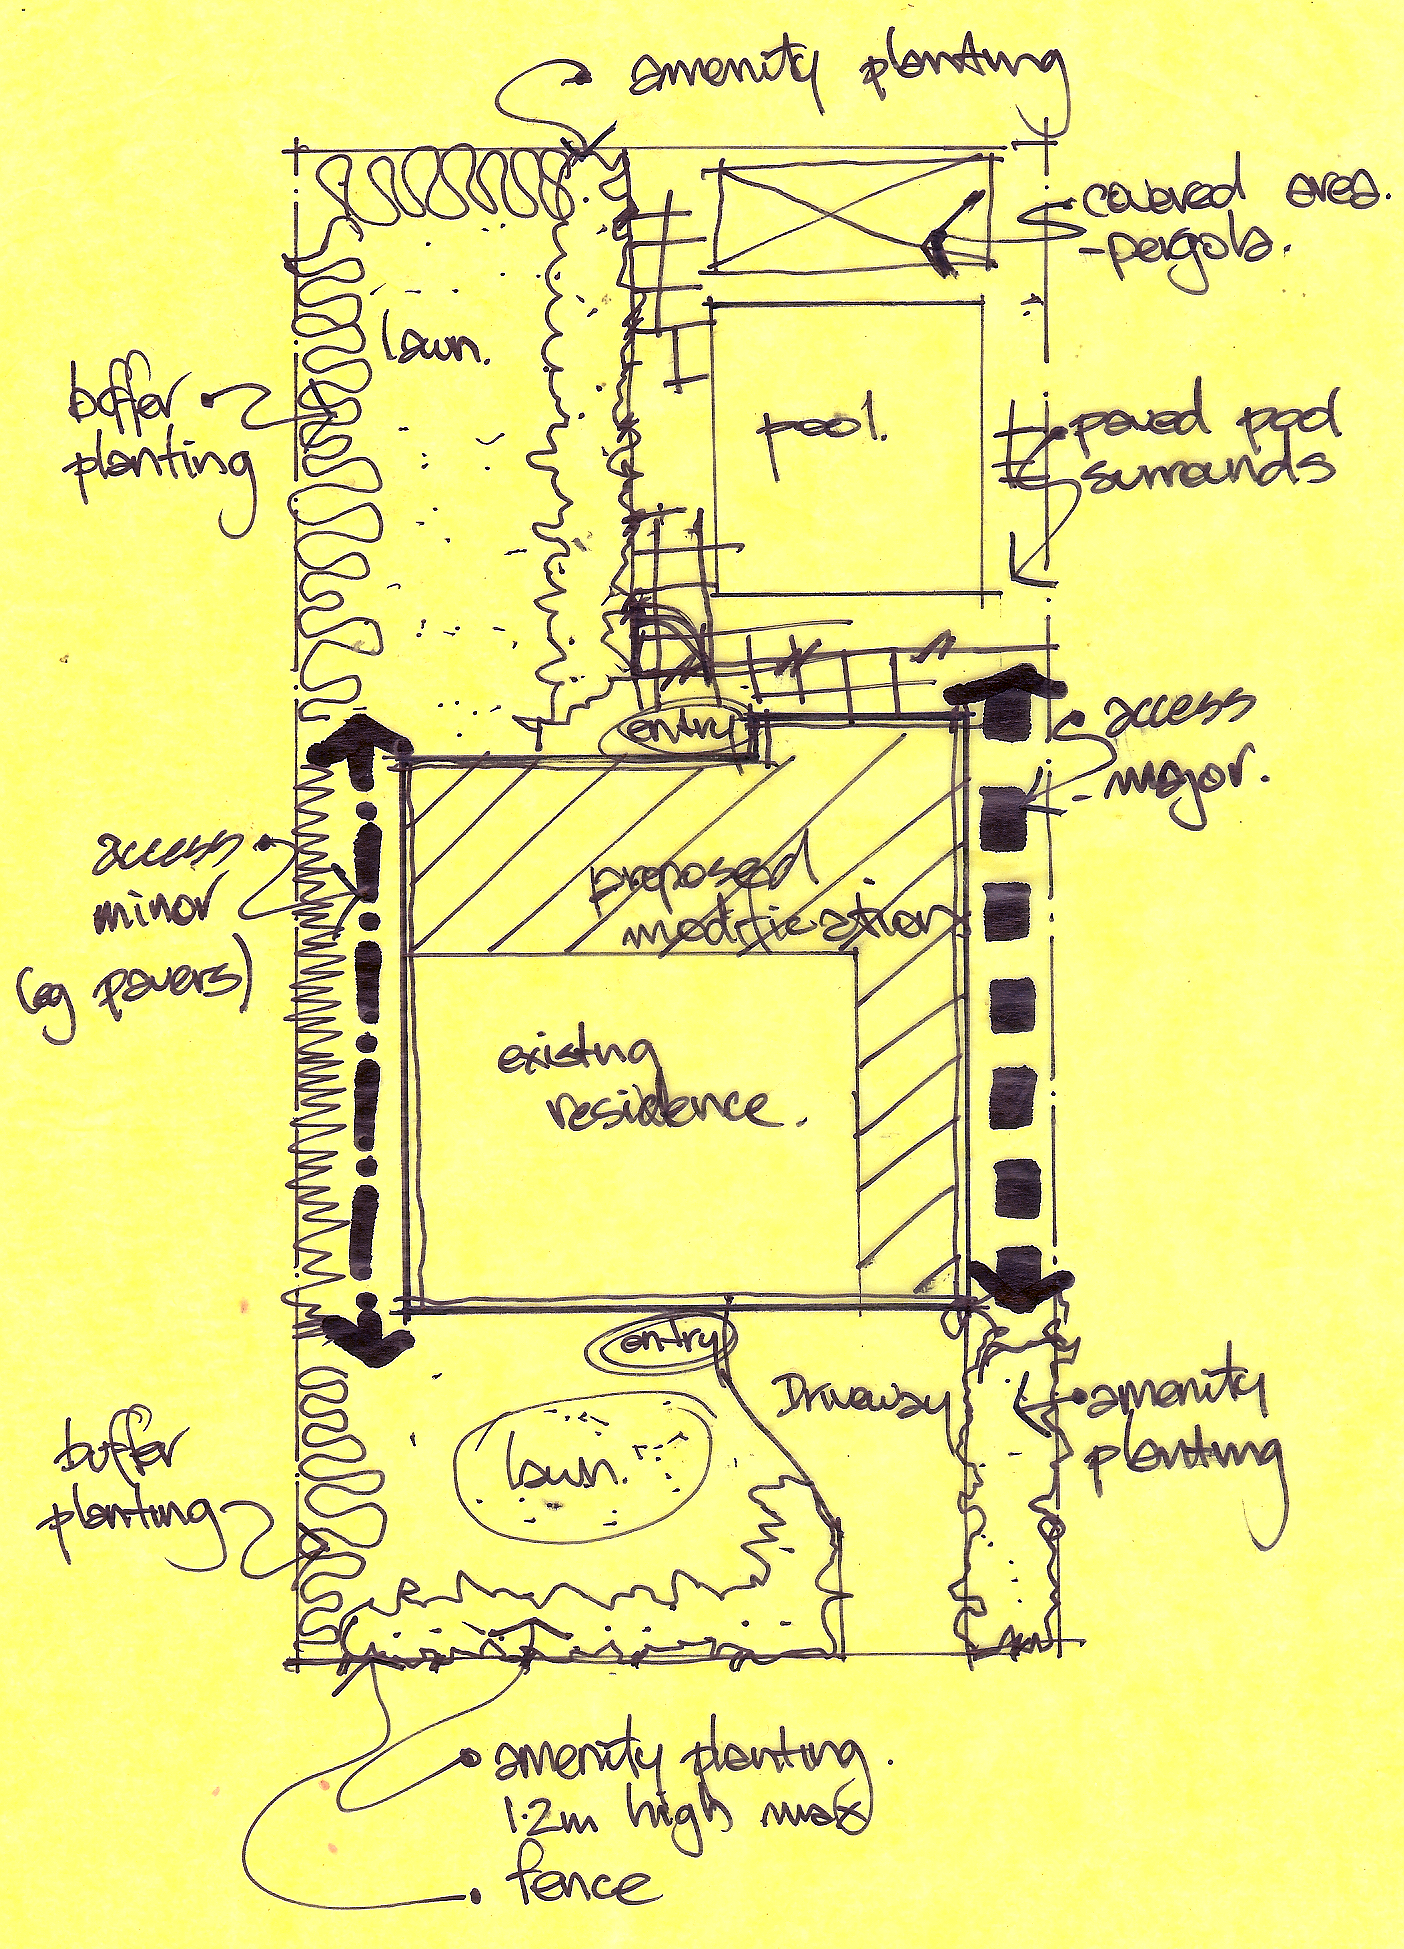 amenity planting
covered area.
-pergola.
lawn.
buffer
planting
pool.
paved pool
surrounds
entry
access
major.
access
minor
(eg pavers)
proposed
modification
existing
residence.
entry
Driveway
amenity
planting
lawn.
buffer
planting
amenity planting.
1.2m high max
fence